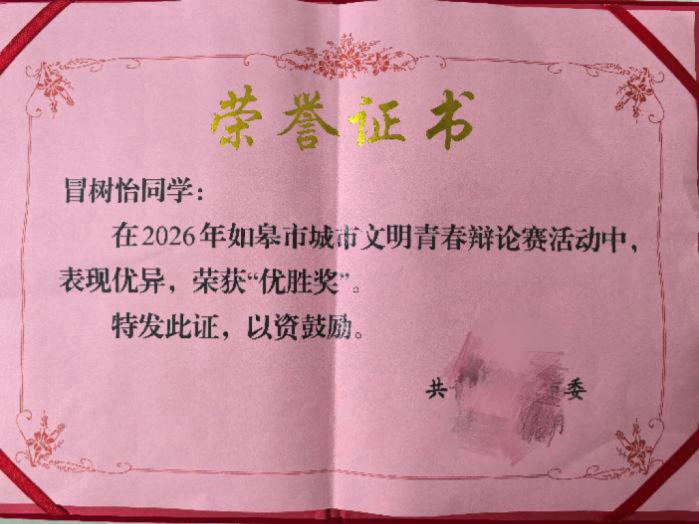 荣誉证书
冒树怡同学：
在2026年如皋市城市文明青春辩论赛活动中，
表现优异，荣获“优胜奖”。
特发此证，以资鼓励。
共 委